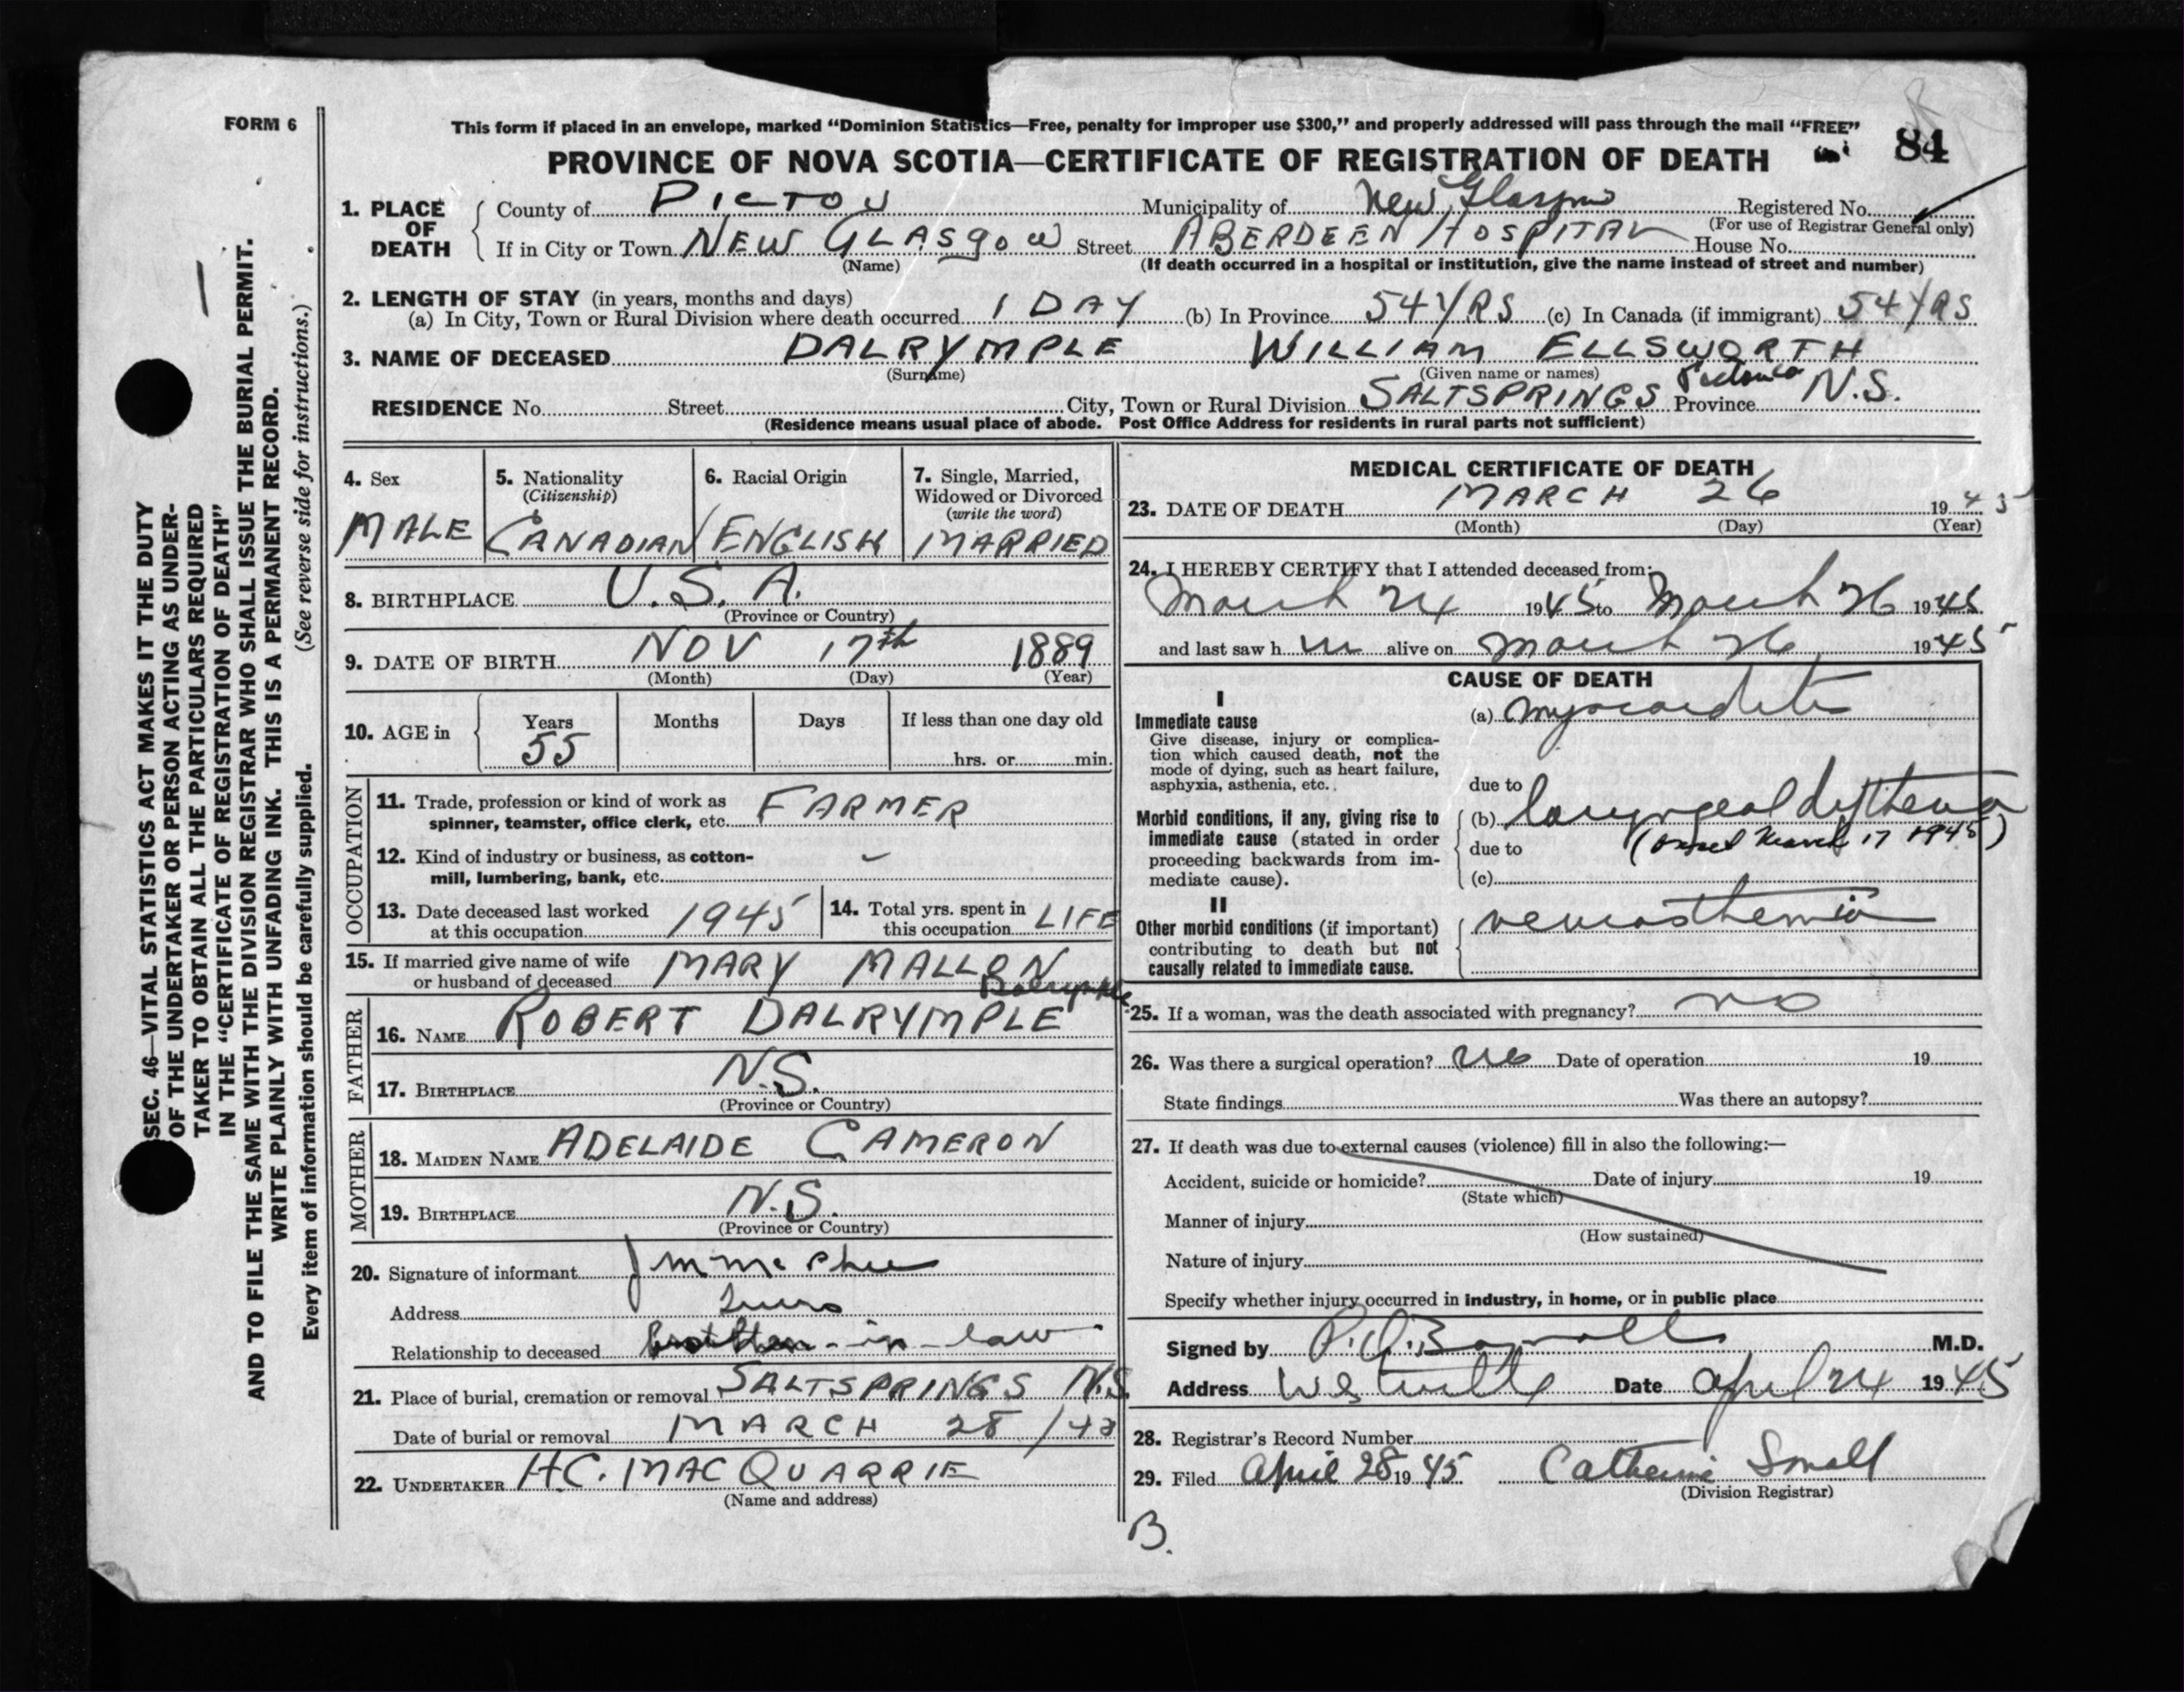 FORM 6
This form if placed in an envelope, marked "Dominion Statistics—Free, penalty for improper use $300," and properly addressed will pass through the mail "FREE"
PROVINCE OF NOVA SCOTIA—CERTIFICATE OF REGISTRATION OF DEATH 84
1. PLACE OF DEATH
County of PICTOU Municipality of New Glasgow Registered No.
(For use of Registrar General only)
If in City or Town NEW GLASGOW Street ABERDEEN HOSPITAL House No.
(Name) (If death occurred in a hospital or institution, give the name instead of street and number)
2. LENGTH OF STAY (in years, months and days)
(a) In City, Town or Rural Division where death occurred 1 DAY (b) In Province 54 YRS (c) In Canada (if immigrant) 54 YRS
3. NAME OF DECEASED DALRYMPLE WILLIAM ELLSWORTH
(Surname) (Given name or names)
RESIDENCE No. Street City, Town or Rural Division SALTSPRINGS Pictou Co Province N.S.
(Residence means usual place of abode. Post Office Address for residents in rural parts not sufficient)
4. Sex MALE
5. Nationality (Citizenship) CANADIAN
6. Racial Origin ENGLISH
7. Single, Married, Widowed or Divorced (write the word) MARRIED
8. BIRTHPLACE U.S.A.
(Province or Country)
9. DATE OF BIRTH NOV 17th 1889
(Month) (Day) (Year)
10. AGE in Years 55 Months Days If less than one day old
hrs. or min.
OCCUPATION
11. Trade, profession or kind of work as spinner, teamster, office clerk, etc. FARMER
12. Kind of industry or business, as cotton-mill, lumbering, bank, etc.
13. Date deceased last worked at this occupation 1945
14. Total yrs. spent in this occupation LIFE
15. If married give name of wife or husband of deceased MARY MALLON
Dalrymple
FATHER
16. NAME ROBERT DALRYMPLE
17. BIRTHPLACE N.S.
(Province or Country)
MOTHER
18. MAIDEN NAME ADELAIDE CAMERON
19. BIRTHPLACE N.S.
(Province or Country)
20. Signature of informant J M McPhee
Address Truro
Relationship to deceased brother-in-law
21. Place of burial, cremation or removal SALTSPRINGS N.S.
Date of burial or removal MARCH 28 /45
22. UNDERTAKER H.C. MACQUARRIE
(Name and address)
MEDICAL CERTIFICATE OF DEATH
23. DATE OF DEATH MARCH 26 1945
(Month) (Day) (Year)
24. I HEREBY CERTIFY that I attended deceased from:
March 24 1945 to March 26 1945
and last saw h im alive on March 26 1945
CAUSE OF DEATH
I
Immediate cause
Give disease, injury or complication which caused death, not the mode of dying, such as heart failure, asphyxia, asthenia, etc.
(a) myocarditis
due to
Morbid conditions, if any, giving rise to immediate cause (stated in order proceeding backwards from immediate cause).
(b) laryngeal diptheria
due to (onset March 17 1945)
(c)
II
Other morbid conditions (if important) contributing to death but not causally related to immediate cause.
neurasthenia
25. If a woman, was the death associated with pregnancy? no
26. Was there a surgical operation? no Date of operation 19
State findings Was there an autopsy?
27. If death was due to external causes (violence) fill in also the following:—
Accident, suicide or homicide? Date of injury 19
(State which)
Manner of injury
(How sustained)
Nature of injury
Specify whether injury occurred in industry, in home, or in public place
Signed by M.D.
Address Westville Date April 24 1945
28. Registrar's Record Number
29. Filed April 28 1945 Catherine Small
(Division Registrar)
B.
SEC. 46—VITAL STATISTICS ACT MAKES IT THE DUTY
OF THE UNDERTAKER OR PERSON ACTING AS UNDER-
TAKER TO OBTAIN ALL THE PARTICULARS REQUIRED
IN THE "CERTIFICATE OF REGISTRATION OF DEATH"
AND TO FILE THE SAME WITH THE DIVISION REGISTRAR WHO SHALL ISSUE THE BURIAL PERMIT.
WRITE PLAINLY WITH UNFADING INK. THIS IS A PERMANENT RECORD.
Every item of information should be carefully supplied. (See reverse side for instructions.)